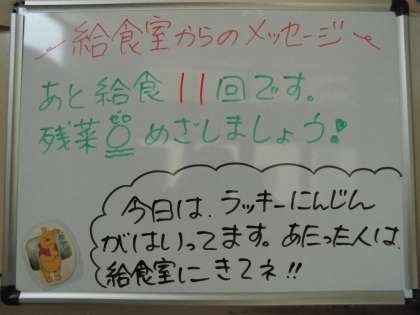 給食室からのメッセージ
あと給食11回です。
残菜0めざしましょう!
今日は、ラッキーにんじん
がはいってます。あたった人は、
給食室にきてネ!!